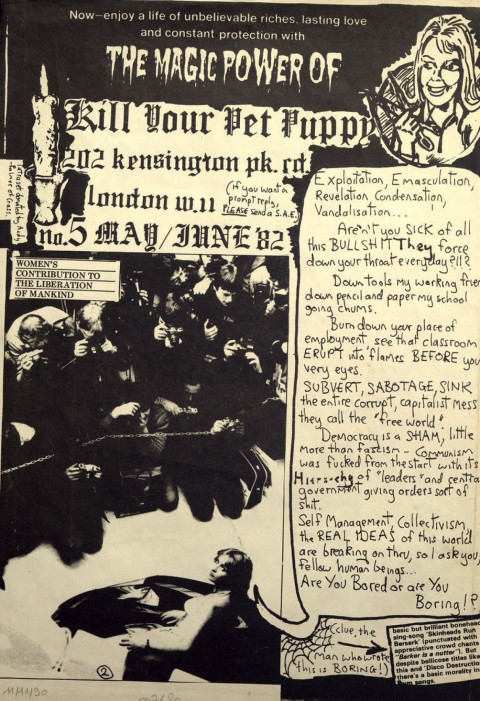 Now—enjoy a life of unbelievable riches, lasting love
and constant protection with
THE MAGIC POWER OF
Kill Your Pet Puppy
202 kensington pk. rd.
london w.11
(if you want a
prompt reply,
PLEASE send a S.A.E.)
no.5 MAY/JUNE '82
WOMEN'S
CONTRIBUTION TO
THE LIBERATION
OF MANKIND
Exploitation, Emasculation,
Revelation, Condensation,
Vandalisation...
Aren't you SICK of all
this BULLSHIT They force
down your throat everyday?!!?
Down tools my working frien
down pencil and paper my school
going chums.
Burn down your place of
employment, see that classroom
ERUPT into flames BEFORE you
very eyes.
SUBVERT, SABOTAGE, SINK
the entire corrupt, capitalist mess
they call the "free world"
Democracy is a SHAM, little
more than fascism - Communism
was fucked from the start with its
Hierarchy of "leaders" and centra
government giving orders sort of
shit.
Self Management, Collectivism,
the REAL IDEAS of this world
are breaking on thru, so I ask you,
fellow human beings...
Are You Bored or are You
Boring!?
(clue, the
man who wrote
this is BORING!)
basic but brilliant bonehead
sing-song 'Skinheads Run
Berserk' (punctuated with
appreciative crowd chants
"Berker is a nutter"). But
despite bellicose titles like
this and 'Disco Destructio
there's a basic morality in
Bum songs.
2